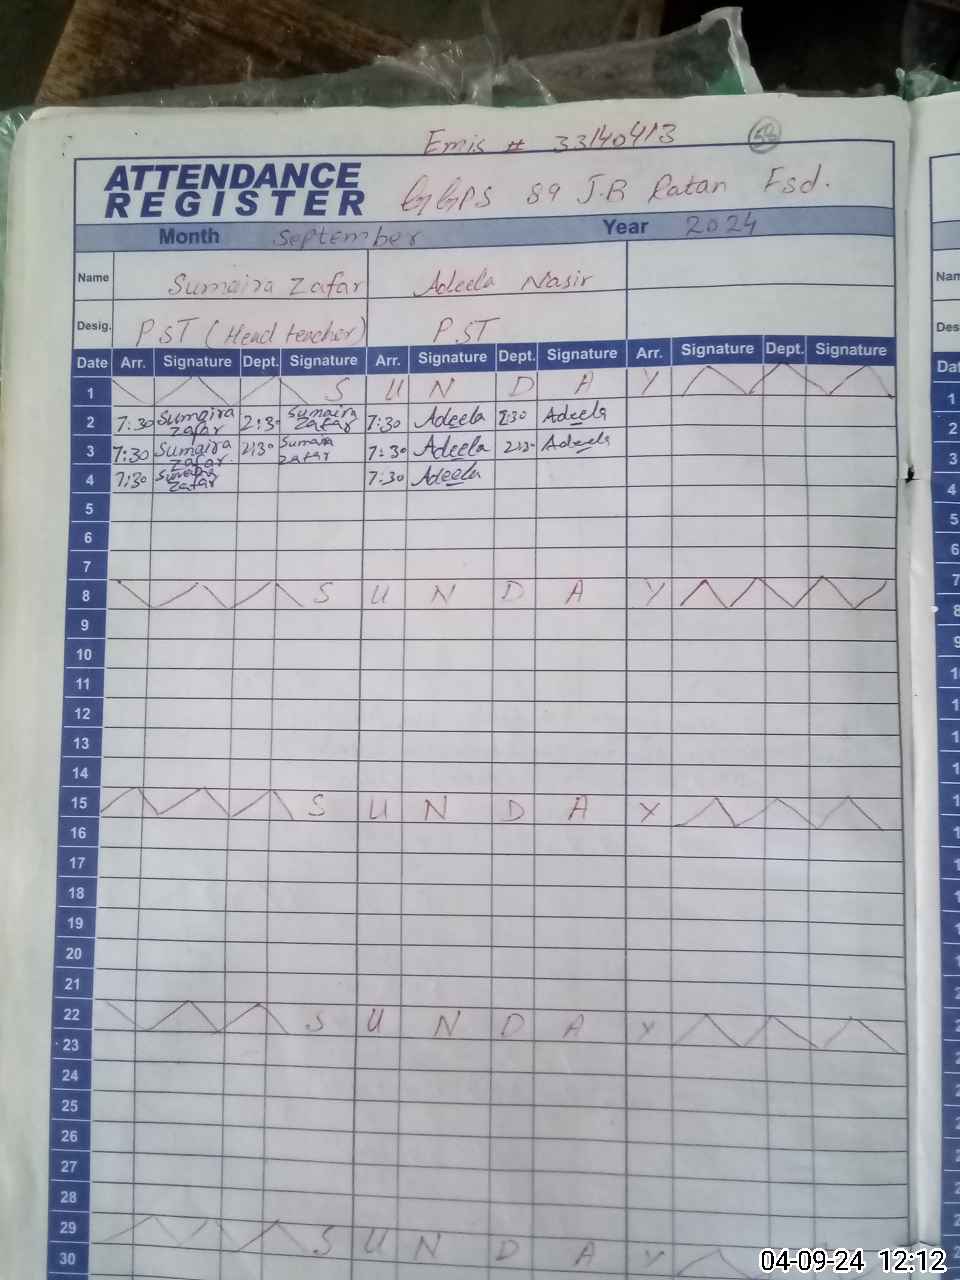 Emis # 33140413
ATTENDANCE
REGISTER
GGPS 89 J.B Ratan Fsd.
Month September Year 2024
Name Sumaira Zafar Adeela Nasir
Desig. PST (Head teacher) PST
Date Arr. Signature Dept. Signature Arr. Signature Dept. Signature Arr. Signature Dept. Signature
1 S U N D A Y
2 7:30 Sumaira Zafar 2:30 Sumaira Zafar 7:30 Adeela 2:30 Adeela
3 7:30 Sumaira Zafar 2:30 Sumaira Zafar 7:30 Adeela 2:30 Adeela
4 7:30 Sumaira Zafar 7:30 Adeela
5
6
7
8 S U N D A Y
9
10
11
12
13
14
15 S U N D A Y
16
17
18
19
20
21
22 S U N D A Y
23
24
25
26
27
28
29 S U N D A Y
30
04-09-24 12:12